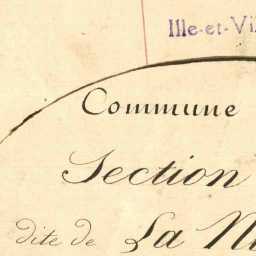 Ille-et-Vi
Commune
Section
dite de La N